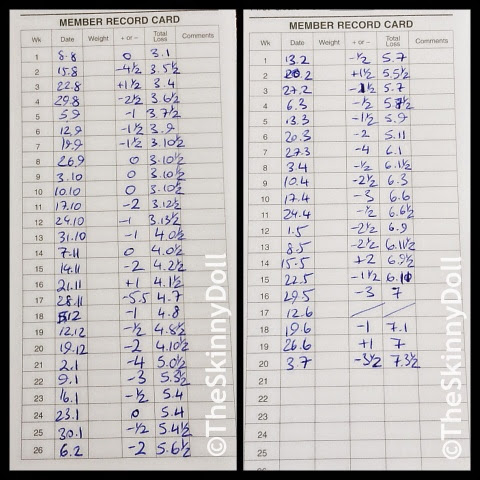 MEMBER RECORD CARD
Wk Date Weight + or – Total Loss Comments
1 8.8 0 3.1
2 15.8 -4½ 3.5½
3 22.8 +1½ 3.4
4 29.8 -2½ 3.6½
5 5.9 -1 3.7½
6 12.9 -1½ 3.9
7 19.9 -1½ 3.10½
8 26.9 0 3.10½
9 3.10 0 3.10½
10 10.10 0 3.10½
11 17.10 -2 3.12½
12 24.10 -1 3.13½
13 31.10 -1 4.0½
14 7.11 0 4.0½
15 14.11 -2 4.2½
16 21.11 +1 4.1½
17 28.11 -5.5 4.7
18 5.12 -1 4.8
19 12.12 -½ 4.8½
20 19.12 -2 4.10½
21 2.1 -4 5.0½
22 9.1 -3 5.3½
23 16.1 -½ 5.4
24 23.1 0 5.4
25 30.1 -½ 5.4½
26 6.2 -2 5.6½
©TheSkinnyDoll
MEMBER RECORD CARD
Wk Date Weight + or – Total Loss Comments
1 13.2 -½ 5.7
2 20.2 +1½ 5.5½
3 27.2 -1½ 5.7
4 6.3 -½ 5.7½
5 13.3 -1½ 5.9
6 20.3 -2 5.11
7 27.3 -4 6.1
8 3.4 -½ 6.1½
9 10.4 -2½ 6.3
10 17.4 -3 6.6
11 24.4 -½ 6.6½
12 1.5 -2½ 6.9
13 8.5 -2½ 6.11½
14 15.5 +2 6.9½
15 22.5 -1½ 6.11
16 29.5 -3 7
17 12.6
18 19.6 -1 7.1
19 26.6 +1 7
20 3.7 -3½ 7.3½
21
22
23
24
25
26
©TheSkinnyDoll